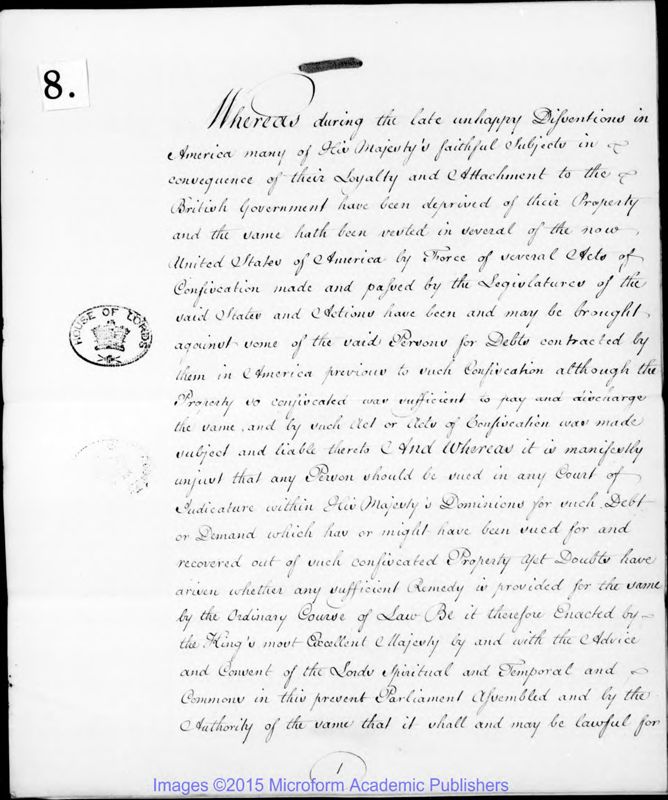 8.
Whereas during the late unhappy Dissentions in
America many of His Majesty's faithful Subjects in
consequence of their Loyalty and Attachment to the
British Government have been deprived of their Property
and the same hath been vested in several of the now
United States of America by Force of several Acts of
Confiscation made and passed by the Legislatures of the
said States and Actions have been and may be brought
against some of the said Persons for Debts contracted by
them in America previous to such Confiscation although the
Property so confiscated was sufficient to pay and discharge
the same, and by such Act or Acts of Confiscation was made
subject and liable thereto And Whereas it is manifestly
unjust that any Person should be sued in any Court of
Judicature within His Majesty's Dominions for such Debt
or Demand which has or might have been sued for and
recovered out of such confiscated Property Yet Doubts have
arisen whether any sufficient Remedy is provided for the same
by the Ordinary Course of Law Be it therefore Enacted by
the King's most Excellent Majesty by and with the Advice
and Consent of the Lords Spiritual and Temporal and
Commons in this present Parliament Assembled and by the
Authority of the same that it shall and may be lawful for
HOUSE OF LORDS
1
Images ©2015 Microform Academic Publishers